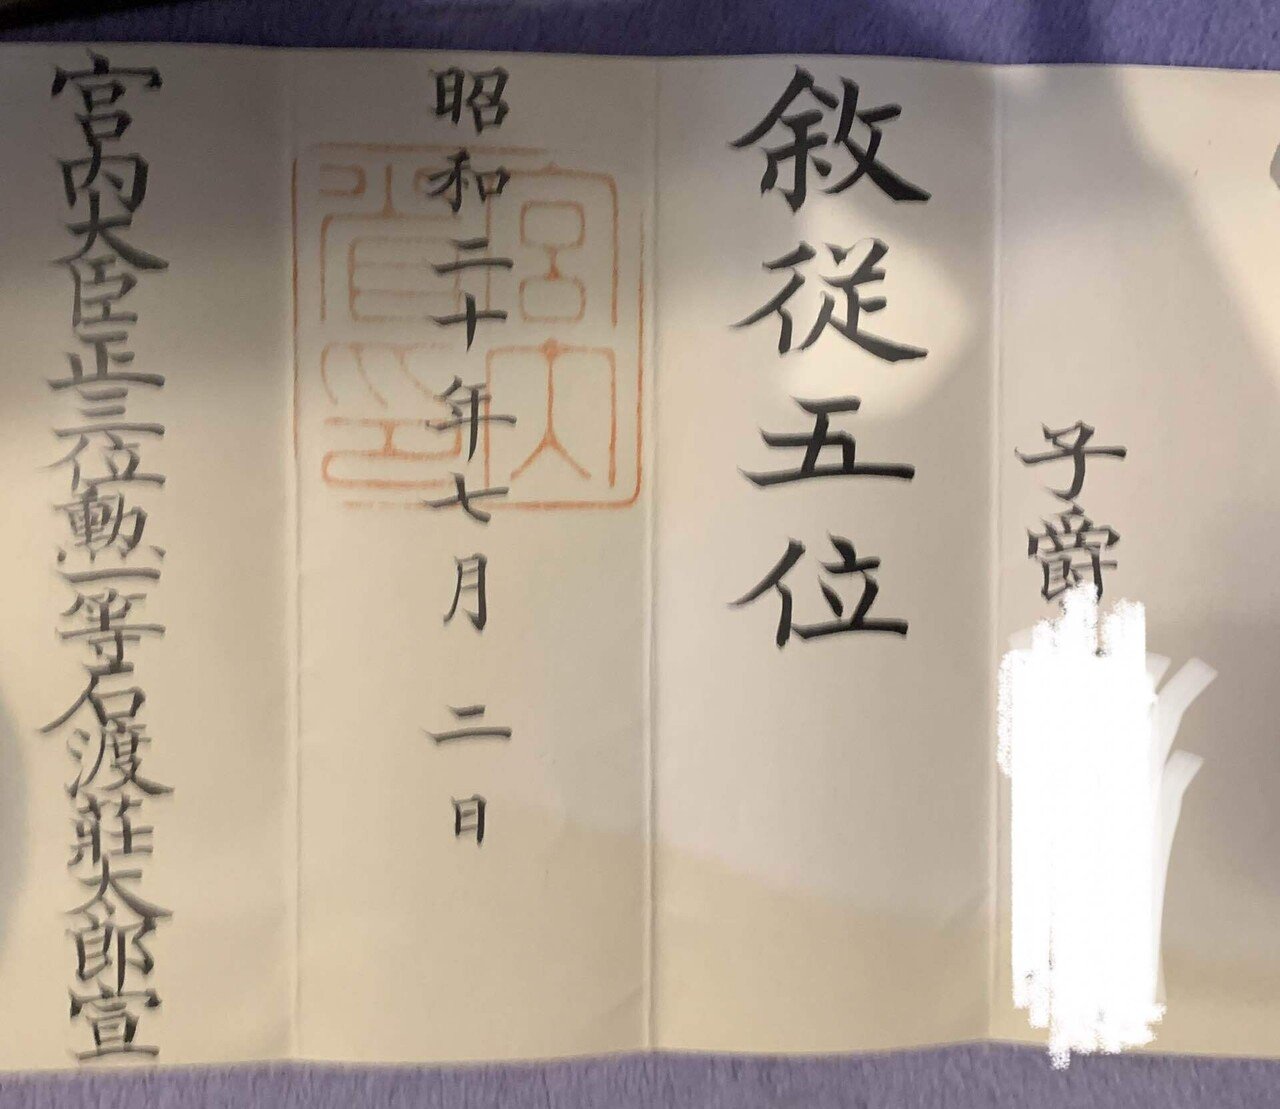 子爵
敘従五位
昭和二十年七月二日
宮内大臣正三位勳一等石渡莊太郎宣
宮内省印